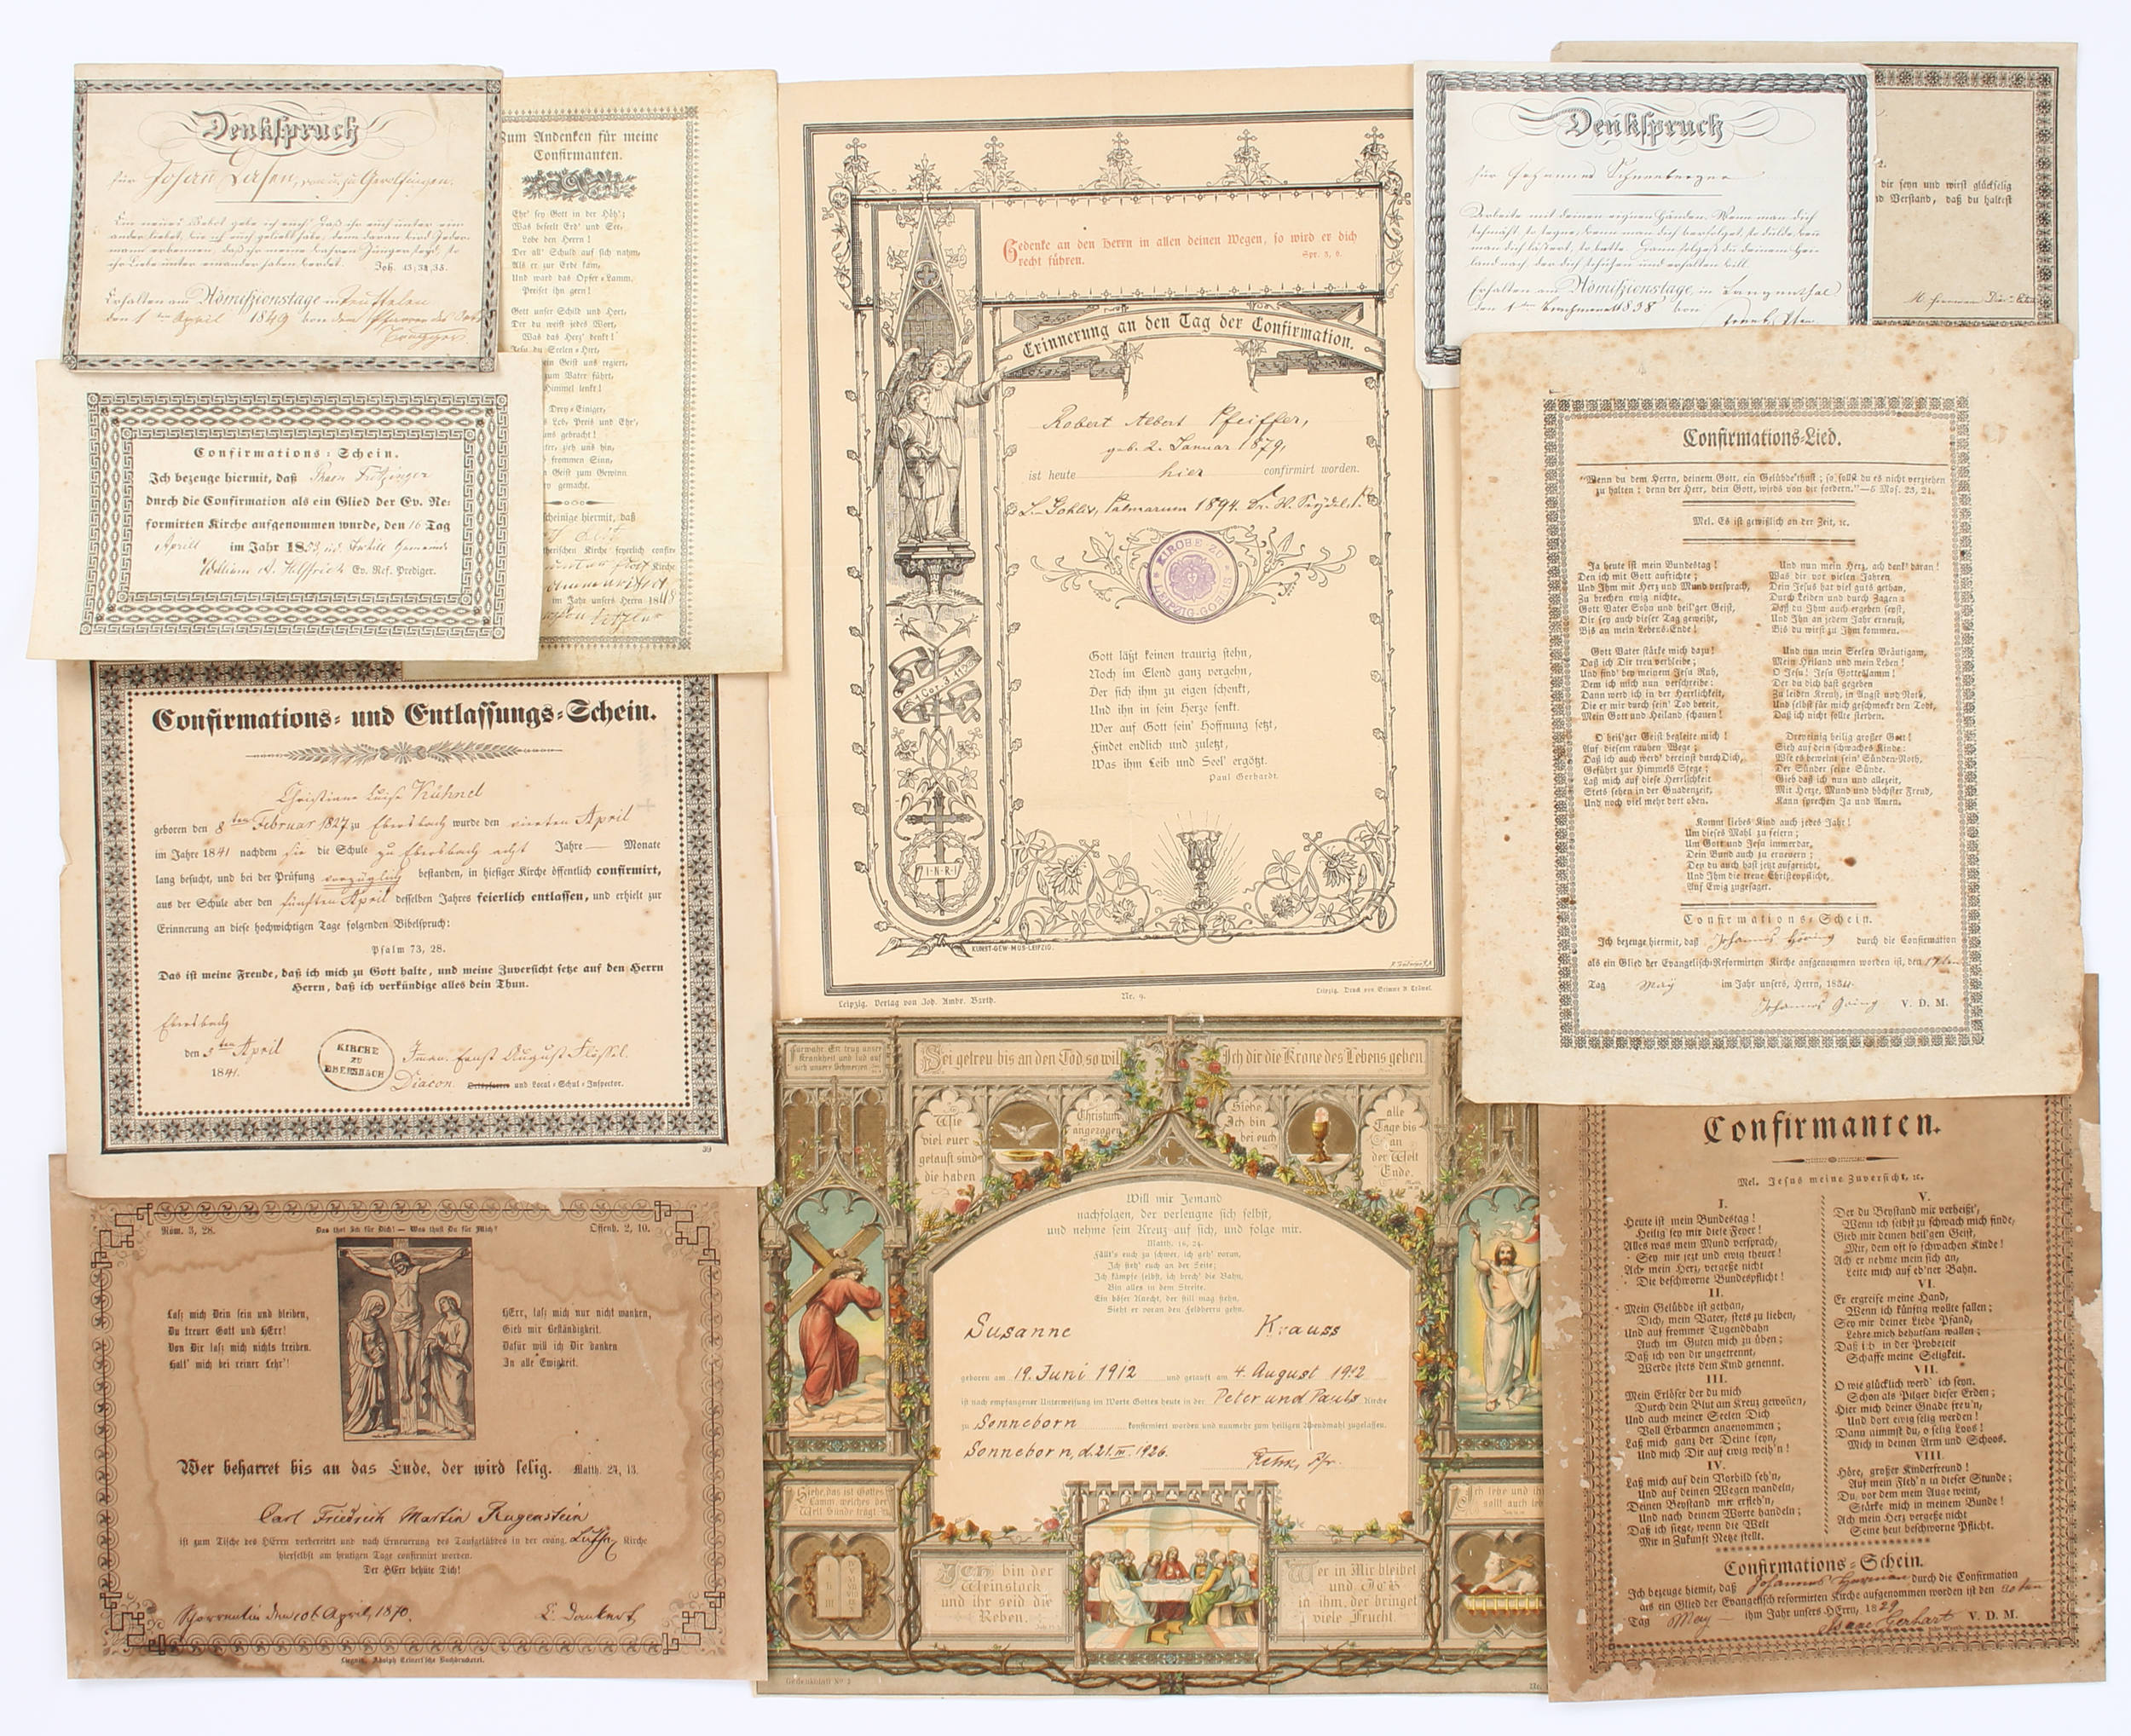 Denkspruch
für Johann
Ein neues Gebot gebe ich euch, daß ihr euch unter ein-
ander liebet, wie ich euch geliebt habe,
Joh. 13, 34, 35.
Erhalten am Admissionstage in
den 1ten April 1849 von dem Pfarrer des Orts
Zum Andenken für meine
Confirmanten.
Ehr' sey Gott in der Höh';
Was beseelt Erd' und See,
Lobe den Herrn!
Der all' Schuld auf sich nahm,
Als er zur Erde kam,
Und ward das Opfer-Lamm,
Preiset ihn gern!
Gott unser Schild und Hort,
Der du weißt jedes Wort,
Was das Herz' denkt!
Jesu du Seelen-Hirt,
ein Geist uns regiert,
zum Vater führt,
Himmel lenkt!
Drey-Einiger,
Lob, Preis und Ehr',
gebracht!
zieh uns hin,
frommen Sinn,
Geist zum Gewinn
gemacht.
scheinige hiermit, daß
therischen Kirche feyerlich confir
Kirche
im Jahr unsers Herrn 1848
Confirmations-Schein.
Ich bezeuge hiermit, daß
durch die Confirmation als ein Glied der Ev. Re-
formirten Kirche aufgenommen wurde, den 16 Tag
Aprill im Jahr 1853
William A. Helffrich Ev. Ref. Prediger.
Confirmations- und Entlassungs-Schein.
Christiane Luise Kühnel
geboren den 8ten Februar 1827 zu Ebersbach wurde den vierten April
im Jahre 1841 nachdem sie die Schule zu Ebersbach acht Jahre — Monate
lang besucht, und bei der Prüfung vorzüglich bestanden, in hiesiger Kirche öffentlich confirmirt,
aus der Schule aber den fünften April desselben Jahres feierlich entlassen, und erhielt zur
Erinnerung an diese hochwichtigen Tage folgenden Bibelspruch:
Psalm 73, 28.
Das ist meine Freude, daß ich mich zu Gott halte, und meine Zuversicht setze auf den Herrn
Herrn, daß ich verkündige alles dein Thun.
Ebersbach
den 5ten April
1841.
KIRCHE
ZU
EBERSBACH
Iman. Ernst August Flössel.
Diacon. Ortspfarrer und Local-Schul-Inspector.
39
Röm. 3, 28.
Das that Ich für Dich! — Was thust Du für Mich?
Offenb. 2, 10.
Lass mich Dein sein und bleiben,
Du treuer Gott und HErr!
Von Dir lass mich nichts treiben.
Halt' mich bei reiner Lehr'!
HErr, lass mich nur nicht wanken,
Gieb mir Beständigkeit.
Dafür will ich Dir danken
In alle Ewigkeit.
Wer beharret bis an das Ende, der wird selig. Matth. 24, 13.
Carl Friedrich Martin Rugenstein
ist zum Tische des HErrn vorbereitet und nach Erneuerung des Taufgelübdes in der evang. Luth. Kirche
hierselbst am heutigen Tage confirmirt worden.
Der HErr behüte Dich!
Schorrentin den 10t April, 1870.
E. Dankert
Liegnitz. Adolph Leinert'sche Buchdruckerei.
Gedenke an den Herrn in allen deinen Wegen, so wird er dich
recht führen.
Spr. 3, 6.
Erinnerung an den Tag der Confirmation.
Robert Albert Pfeiffer,
geb. 2. Januar 1879,
ist heute hier confirmirt worden.
L.-Gohlis, Palmarum 1894. Dr. R. Seydel. P.
KIRCHE ZU
LEIPZIG-GOHLIS
Gott läßt keinen traurig stehn,
Noch im Elend ganz vergehn,
Der sich ihm zu eigen schenkt,
Und ihn in sein Herze senkt.
Wer auf Gott sein' Hoffnung setzt,
Findet endlich und zuletzt,
Was ihm Leib und Seel' ergötzt.
Paul Gerhardt.
1 Cor. 3. 11
I·N·R·I
KUNST-GEW-MUS-LEIPZIG.
Leipzig. Verlag von Joh. Ambr. Barth.
Nr. 9.
Leipzig. Druck von Grimme & Trömel.
Fürwahr, Er trug unsere
Krankheit und lud auf
sich unsere Schmerzen.
Sei getreu bis an den Tod, so will
Ich dir die Krone des Lebens geben.
Wie
viel euer
getauft sind
die haben
Christum
angezogen
Siehe,
Ich bin
bei euch
alle
Tage bis
an
der Welt
Ende.
Will mir Jemand
nachfolgen, der verleugne sich selbst,
und nehme sein Kreuz auf sich, und folge mir.
Matth. 16, 24.
Fällt's euch zu schwer, ich geh' voran,
Ich steh' euch an der Seite;
Ich kämpfe selbst, ich brech' die Bahn,
Bin alles in dem Streite.
Ein böser Knecht, der still mag stehn,
Sieht er voran den Feldherrn gehn.
Susanne Krauss
geboren am 19. Juni 1912 und getauft am 4. August 1912
ist nach empfangener Unterweisung im Worte Gottes heute in der Peter und Pauls Kirche
zu Sonneborn konfirmiert worden und nunmehr zum heiligen Abendmahl zugelassen.
Sonneborn, d. 21. III. 1926.
Siehe, das ist Gottes
Lamm, welches der
Welt Sünde trägt.
Ich lebe und ihr
sollt auch leben
Ich bin der
Weinstock
und ihr seid die
Reben.
Wer in Mir bleibet
und ICH
in ihm, der bringet
viele Frucht.
Gedenkblatt No 2
Denkspruch
für Johannes Schneeberger
Arbeite mit deinen eignen Händen. Wenn man dich
schmäht, so segne; wenn man dich verfolget, so dulde; wenn
man dich lästert, so bette.
Erhalten am Admissionstage in Langenthal
1838 von
dir seyn und wirst glückselig
nd Verstand, daß du haltest
Confirmations-Lied.
"Wenn du dem Herrn, deinem Gott, ein Gelübde thust; so sollst du es nicht verziehen
zu halten; denn der Herr, dein Gott, wirds von dir fordern."—5 Mos. 23, 21.
Mel. Es ist gewißlich an der Zeit, ꝛc.
Ja heute ist mein Bundestag!
Den ich mit Gott aufrichte;
Und Ihm mit Herz und Mund versprach,
Zu brechen ewig nichte.
Gott Vater Sohn und heil'ger Geist,
Dir sey auch dieser Tag geweiht,
Bis an mein Lebens-Ende!
Gott Vater stärke mich dazu!
Daß ich Dir treu verbleibe;
Und find' bey meinem Jesu Ruh,
Dem ich mich nun verschreibe:
Dann werd ich in der Herrlichkeit,
Die er mir durch sein' Tod bereit,
Mein Gott und Heiland schauen!
O heil'ger Geist begleite mich!
Auf diesem rauhen Wege;
Daß ich auch werd' dereinst durch Dich,
Geführt zur Himmels Stege;
Laß mich auf diese Herrlichkeit
Stets sehen in der Gnadenzeit,
Und noch viel mehr dort oben.
Und nun mein Herz, ach denk' daran!
Was dir vor vielen Jahren
Dein Jesus hat viel guts gethan,
Durch Leiden und durch Zagen:
Daß du Ihm auch ergeben seyst,
Und Ihn an jedem Jahr erneust,
Bis du wirst zu Ihm kommen.
Und nun mein Seelen Bräutigam,
Mein Heiland und mein Leben!
O Jesu! Jesu Gotteslamm!
Der du dich hast gegeben
Zu leiden Kreuz, in Angst und Noth,
Und selbst für mich geschmeckt den Todt,
Daß ich nicht sollte sterben.
Dreieinig heilig großer Gott!
Sieh auf dein schwaches Kinde:
Wie es beweint sein' Sünden-Noth,
Der Sünder seine Sünde.
Gieb daß ich nun und allezeit,
Mit Herze, Mund und höchster Freud,
Kann sprechen Ja und Amen.
Kommt liebes Kind auch jedes Jahr!
Um dieses Mahl zu feiern;
Um Gott und Jesu immerdar,
Dein Bund auch zu erneuern;
Den du auch hast jetzt aufgericht,
Und Ihm die treue Christenpflicht,
Auf Ewig zugesaget.
Confirmations-Schein.
Ich bezeuge hiermit, daß Johannes Göring durch die Confirmation
als ein Glied der Evangelisch-Reformirten Kirche aufgenommen worden ist, den 17ten
Tag May im Jahr unsers, Herrn, 1834.
Johannes Göring V. D. M.
Confirmanten.
Mel. Jesus meine Zuversicht, ꝛc.
I.
Heute ist mein Bundestag!
Heilig sey mir diese Feyer!
Alles was mein Mund versprach,
Sey mir jezt und ewig theuer!
Ach mein Herz, vergeße nicht
Die beschworne Bundespflicht!
II.
Mein Gelübde ist gethan,
Dich, mein Vater, stets zu lieben,
Und auf frommer Tugendbahn
Auch im Guten mich zu üben;
Daß ich von dir ungetrennt,
Werde stets dein Kind genennt.
III.
Mein Erlöser der du mich
Durch dein Blut am Kreuz gewonnen,
Und auch meiner Seelen Dich
Voll Erbarmen angenommen;
Laß mich ganz der Deine seyn,
Und mich Dir auf ewig weih'n!
IV.
Laß mich auf dein Vorbild seh'n,
Und auf deinen Wegen wandeln,
Deinen Beystand mir erfleh'n,
Und nach deinem Worte handeln;
Daß ich siege, wenn die Welt
Mir in Zukunft Netze stellt.
V.
Der du Beystand mir verheißt,
Wenn ich selbst zu schwach mich finde,
Gieb mir deinen heil'gen Geist,
Mir, dem oft so schwachen Kinde!
Ach er nehme mein sich an,
Leite mich auf eb'ner Bahn.
VI.
Er ergreife meine Hand,
Wenn ich künftig wollte fallen;
Sey mir deiner Liebe Pfand,
Lehre mich behutsam wallen;
Daß ich in der Probezeit
Schaffe meine Seligkeit.
VII.
O wie glücklich werd' ich seyn,
Schon als Pilger dieser Erden;
Hier mich deiner Gnade freu'n,
Und dort ewig selig werden!
Dann nimmst du, o selig Loos!
Mich in deinen Arm und Schoos.
VIII.
Höre, großer Kinderfreund!
Auf mein Fleh'n in dieser Stunde;
Du, vor dem mein Auge weint,
Stärke mich in meinem Bunde!
Ach mein Herz vergeße nicht
Seine heut beschworne Pflicht.
Confirmations-Schein.
Ich bezeuge hiermit, daß Johannes Herman durch die Confirmation
als ein Glied der Evangelisch reformirten Kirche aufgenommen worden ist den 30ten
Tag May ihm Jahr unsers HErrn, 1829
Isaac Gerhart V. D. M.